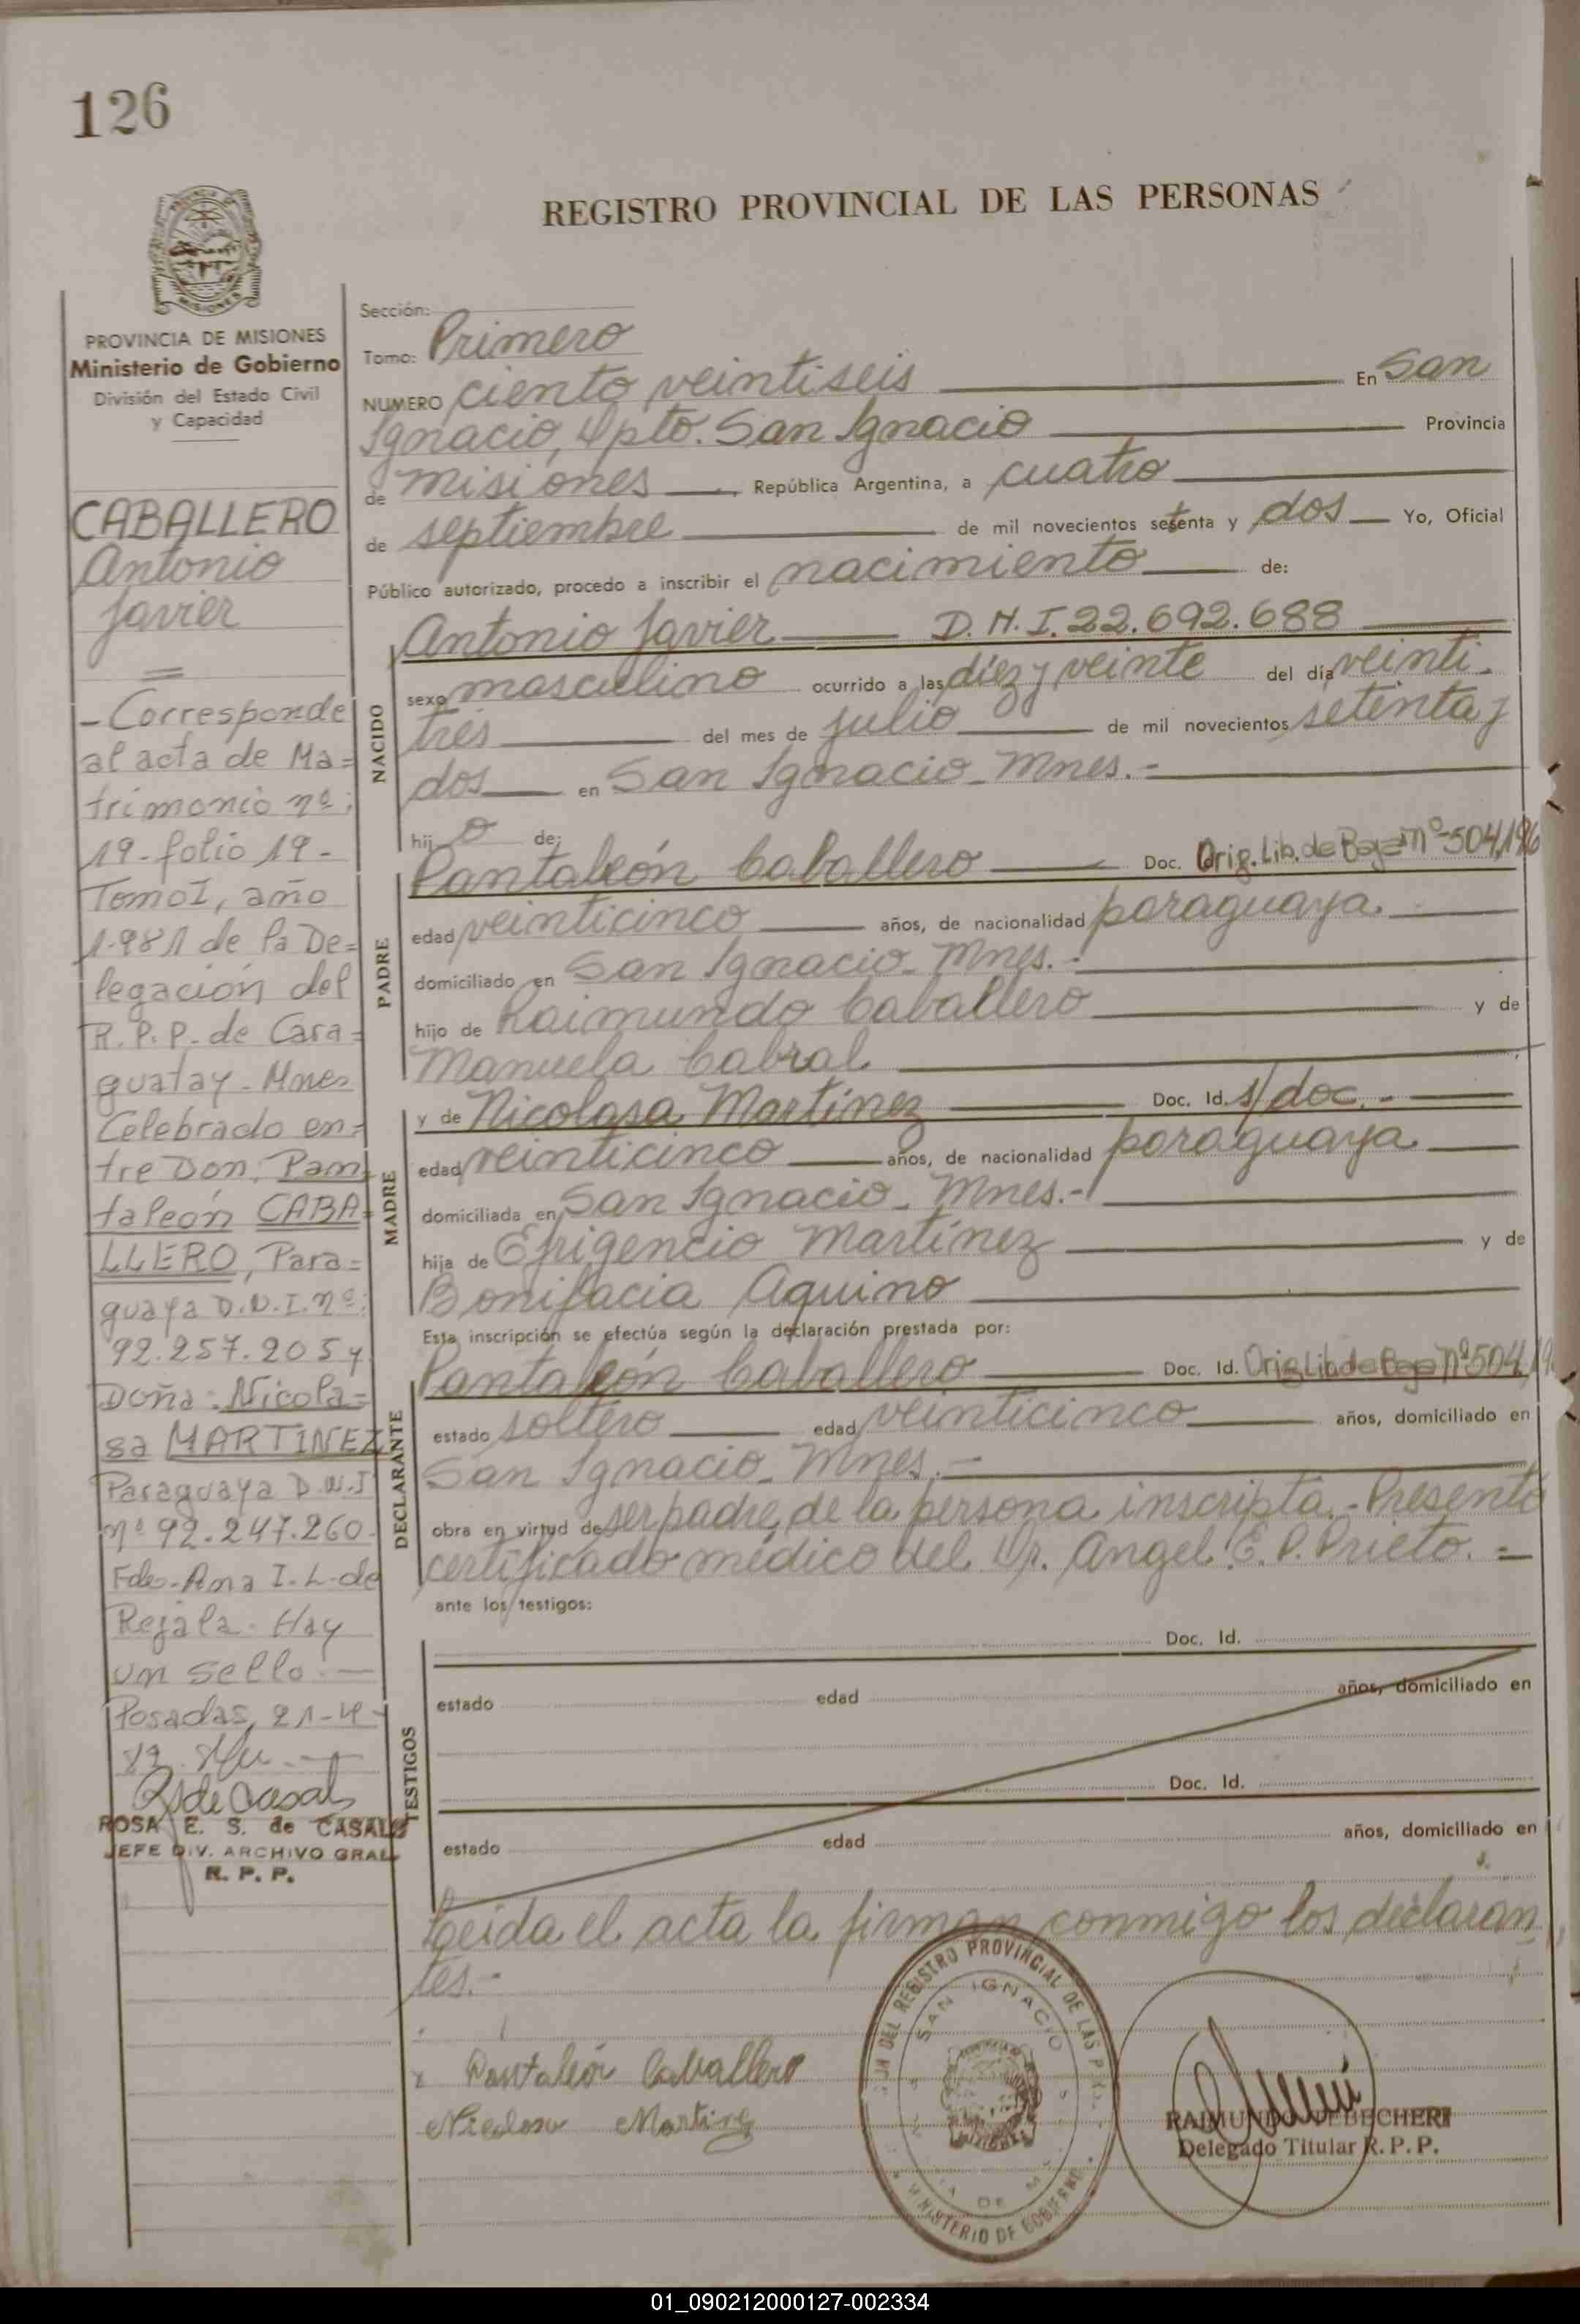 126
REGISTRO PROVINCIAL DE LAS PERSONAS
MISIONES
PROVINCIA DE MISIONES
Ministerio de Gobierno
División del Estado Civil
y Capacidad
CABALLERO
Antonio
Javier
=
- Corresponde
al acta de Ma=
trimonio nº:
19-folio 19-
Tomo I, año
1.981 de la De=
legación del
R.P.P. de Cara=
guatay-Mnes
Celebrado en=
tre Don: Pan=
taleón CABA=
LLERO, Para=
guaya D.N.I. nº:
92.257.205 y
Doña: Nicola=
sa MARTINEZ
Paraguaya D.N.I
nº 92.247.260.
Fdo-Ana I. L. de
Rejala. Hay
un sello.—
Posadas, 21-4-
R S de Casals
ROSA E. S. de CASALS
JEFE DIV. ARCHIVO GRAL
R. P. P.
Sección:
Tomo: Primero
NUMERO ciento veintiseis En San
Ignacio, Dpto. San Ignacio Provincia
de Misiones República Argentina, a cuatro
de septiembre de mil novecientos setenta y dos Yo, Oficial
Público autorizado, procedo a inscribir el nacimiento de:
NACIDO
Antonio Javier D.N.I. 22.692.688
sexo masculino ocurrido a las diez y veinte del día veinti-
trés del mes de julio de mil novecientos setenta y
dos en San Ignacio-Mnes.-
hijo de:
PADRE
Pantaleón Caballero Doc. Orig. Lib. de Baja nº 504,196
edad veinticinco años, de nacionalidad paraguaya.
domiciliado en San Ignacio-Mnes.-
hijo de Raimundo Caballero y de
Manuela Cabral
MADRE
y de Nicolasa Martínez Doc. Id. s/doc.-
edad veinticinco años, de nacionalidad paraguaya
domiciliada en San Ignacio-Mnes.-
hija de Efigencio Martínez y de
Bonifacia Aquino
Esta inscripción se efectúa según la declaración prestada por:
DECLARANTE
Pantaleón Caballero Doc. Id. Orig. Lib. de Baja nº 504,19
estado soltero edad veinticinco años, domiciliado en
San Ignacio-Mnes.-
obra en virtud de ser padre de la persona inscripta.-Presentó
certificado médico del Dr. Angel E. P. Prieto.=
ante los testigos:
TESTIGOS
Doc. Id.
estado edad años, domiciliado en
Doc. Id.
estado edad años, domiciliado en
Leida el acta la firman conmigo los declaran
tes.-
x Pantaleón Caballero
Nicolasa Martinez
DEL REGISTRO PROVINCIAL DE LAS
SAN IGNACIO
MISIONES
MINISTERIO DE GOBIERNO
RAIMUNDO DEBECHERI
Delegado Titular R. P. P.
01_090212000127-002334